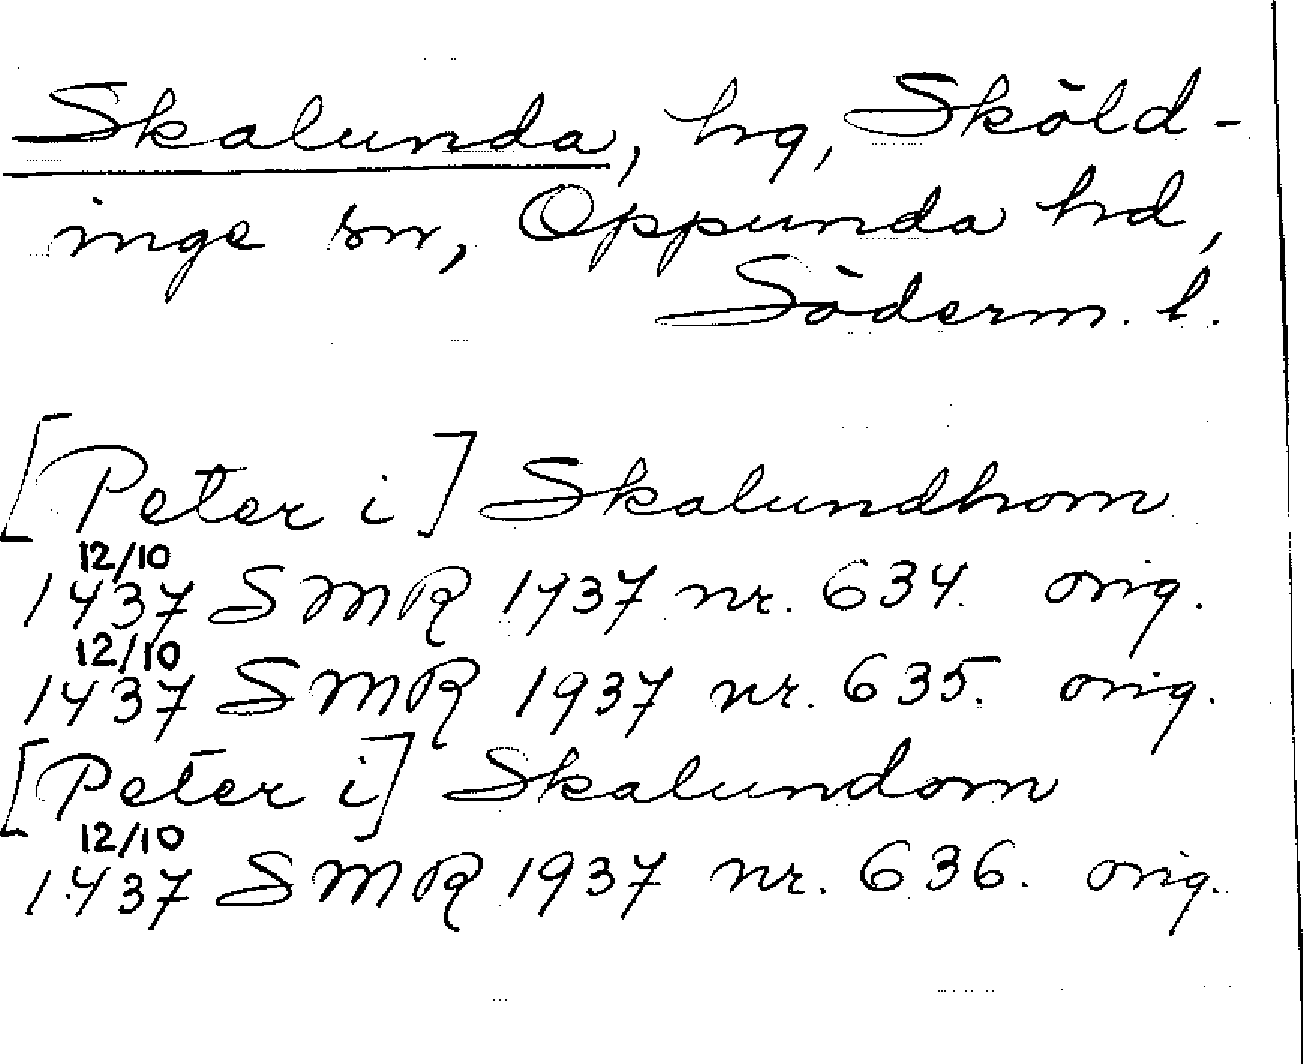 Skalunda, hg, Sköld-
inge sn, Oppunda hd,
Söderm. l.
[Peter i] Skalundhom
12/10
1437 SMR 1937 nr. 634. orig.
12/10
1437 SMR 1937 nr. 635. orig.
[Peter i] Skalundom
12/10
1437 SMR 1937 nr. 636. orig.